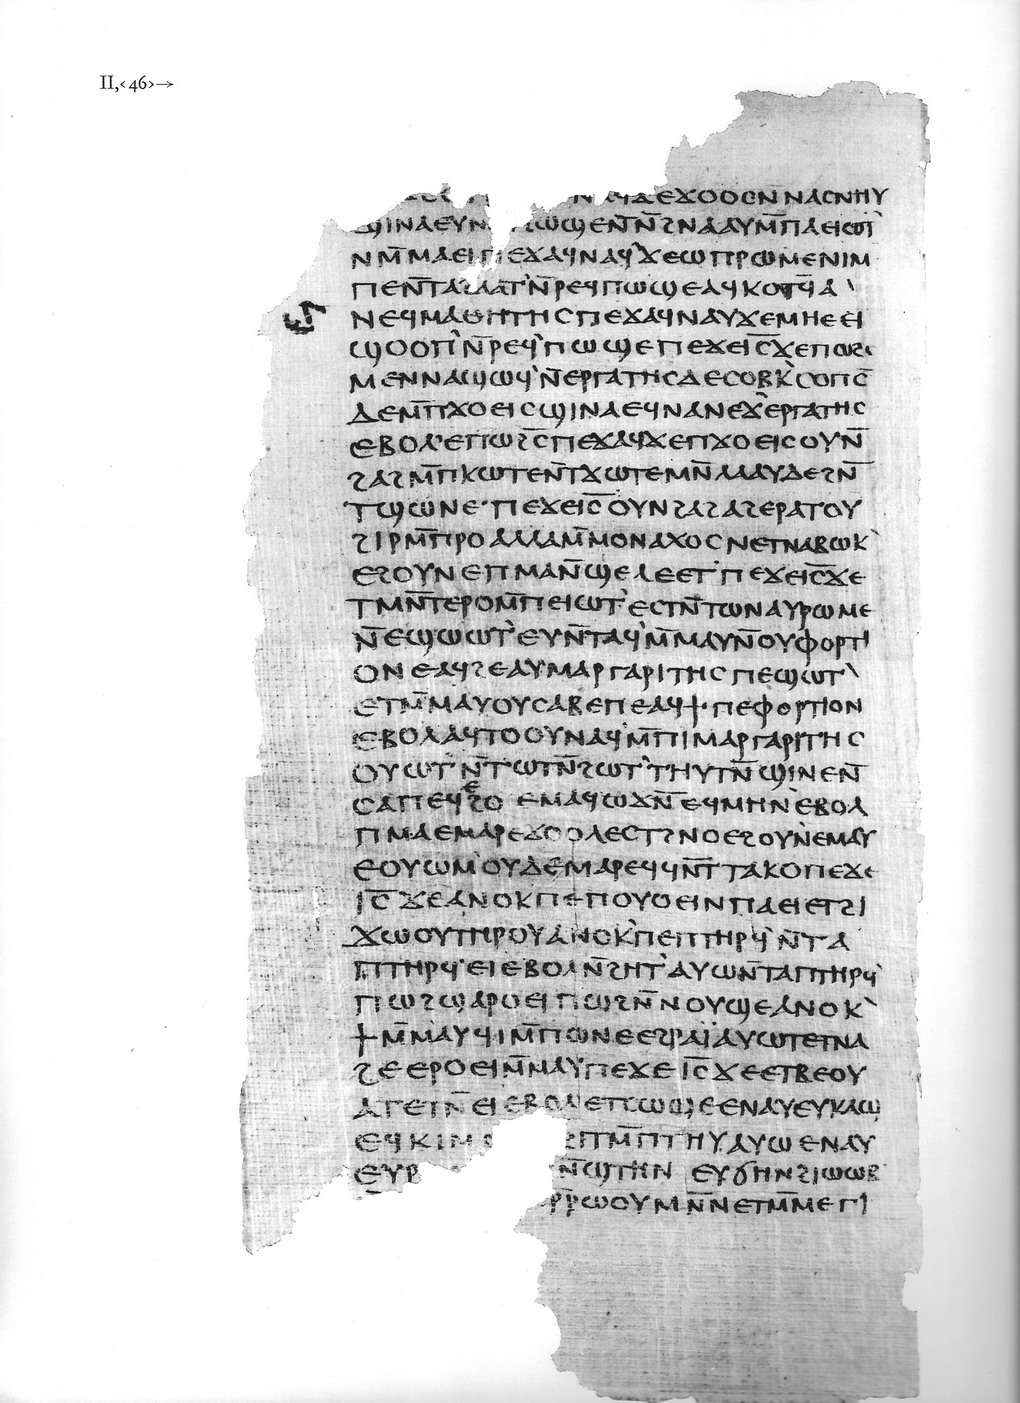 II,‹46›→
ϥϫⲉϫⲟⲟⲥⲛ̄ⲛⲁⲥⲛⲏⲩ
ϣⲓⲛⲁⲉⲩⲛ ⲡⲱϣⲉⲛⲛ̄ϩⲛⲁⲁⲩⲙ̄ⲡⲁⲉⲓⲱⲧ`
ⲛⲙ̄ⲙⲁⲉⲓⲡⲉϫⲁϥⲛⲁϥ`ϫⲉⲱⲡⲣⲱⲙⲉⲛⲓⲙ
ⲡⲉⲛⲧⲁϩⲁⲁⲧ`ⲛ̄ⲣⲉϥⲡⲱϣⲉⲁϥⲕⲟⲧϥ̄ⲁ`
ⲛⲉϥⲙⲁⲑⲏⲧⲏⲥⲡⲉϫⲁϥⲛⲁⲩϫⲉⲙⲏⲉⲉⲓ
ϣⲟⲟⲡ`ⲛ̄ⲣⲉϥ`ⲡⲱϣⲉⲡⲉϫⲉⲓ̅ⲥ̅ϫⲉⲡⲱϩⲥ
ⲙⲉⲛⲛⲁϣⲱϥ`ⲛ̄ⲉⲣⲅⲁⲧⲏⲥⲇⲉⲥⲟⲃⲕ`ⲥⲟⲡⲥ̄
ⲇⲉⲙ̄ⲡϫⲟⲉⲓⲥϣⲓⲛⲁⲉϥⲛⲁⲛⲉϫ`ⲉⲣⲅⲁⲧⲏⲥ
ⲉⲃⲟⲗ`ⲉⲡⲱϩⲥ̄ⲡⲉϫⲁϥϫⲉⲡϫⲟⲉⲓⲥⲟⲩⲛ̄
ϩⲁϩⲙ̄ⲡⲕⲱⲧⲉⲛ̄ⲧϫⲱⲧⲉⲙⲛ̄ⲗⲁⲁⲩⲇⲉϩⲛ̄
ⲧϣⲱⲛⲉ`ⲡⲉϫⲉⲓ̅ⲥ̅ⲟⲩⲛϩⲁϩⲁϩⲉⲣⲁⲧⲟⲩ
ϩⲓⲣⲙ̄ⲡⲣⲟⲁⲗⲗⲁⲙ̄ⲙⲟⲛⲁⲭⲟⲥⲛⲉⲧⲛⲁⲃⲱⲕ`
ⲉϩⲟⲩⲛⲉⲡⲙⲁⲛ̄ϣⲉⲗⲉⲉⲧ`ⲡⲉϫⲉⲓ̅ⲥ̅ϫⲉ
ⲧⲙⲛ̄ⲧⲉⲣⲟⲙ̄ⲡⲉⲓⲱⲧ`ⲉⲥⲧⲛ̄ⲧⲱⲛⲁⲩⲣⲱⲙⲉ
ⲛ̄ⲉϣⲱⲱⲧ`ⲉⲩⲛ̄ⲧⲁϥ`ⲙ̄ⲙⲁⲩⲛ̄ⲟⲩⲫⲟⲣⲧⲓ
ⲟⲛⲉⲁϥϩⲉⲁⲩⲙⲁⲣⲅⲁⲣⲓⲧⲏⲥⲡⲉϣⲱⲧ`
ⲉⲧⲙ̄ⲙⲁⲩⲟⲩⲥⲁⲃⲉⲡⲉⲁϥϯ·ⲡⲉⲫⲟⲣⲧⲓⲟⲛ
ⲉⲃⲟⲗⲁϥⲧⲟⲟⲩⲛⲁϥ`ⲙ̄ⲡⲓⲙⲁⲣⲅⲁⲣⲓⲧⲏⲥ
ⲟⲩⲱⲧ`ⲛ̄ⲧⲱⲧⲛ̄ϩⲱⲧ`ⲧⲏⲩⲧⲛ̄ϣⲓⲛⲉⲛ̄
ⲥⲁⲡⲉϥ`ⲉϩⲟⲉⲙⲁϥⲱϫⲛ̄ⲉϥⲙⲏⲛ`ⲉⲃⲟⲗ
ⲡⲙⲁⲉⲙⲁⲣⲉϫⲟⲟⲗⲉⲥⲧϩⲛⲟⲉϩⲟⲩⲛ`ⲉⲙⲁⲩ
ⲉⲟⲩⲱⲙ`ⲟⲩⲇⲉⲙⲁⲣⲉϥϥⲛ̄ⲧⲧⲁⲕⲟⲡⲉϫⲉ
ⲓ̅ⲥ̅ϫⲉⲁⲛⲟⲕⲡⲉⲡⲟⲩⲟⲉⲓⲛⲡⲁⲉⲓⲉⲧϩⲓ
ϫⲱⲟⲩⲧⲏⲣⲟⲩⲁⲛⲟⲕ`ⲡⲉⲡⲧⲏⲣϥ`ⲛ̄ⲧⲁ
ⲡⲧⲏⲣϥ`ⲉⲓⲉⲃⲟⲗⲛ̄ϩⲏⲧ`ⲁⲩⲱⲛ̄ⲧⲁⲡⲧⲏⲣϥ`
ⲡⲱϩϣⲁⲣⲟⲉⲓⲡⲱϩⲛ̄ⲛⲟⲩϣⲉⲁⲛⲟⲕ`
ϯⲙ̄ⲙⲁⲩϥⲓⲙ̄ⲡⲱⲛⲉⲉϩⲣⲁⲓ̈ⲁⲩⲱⲧⲉⲧⲛⲁ
ϩⲉⲉⲣⲟⲉⲓⲙ̄ⲙⲁⲩⲡⲉϫⲉⲓ̅ⲥ̅ϫⲉⲉⲧⲃⲉⲟⲩ
ⲁⲧⲉⲧⲛ̄ⲉⲓⲉⲃⲟⲗⲉⲧⲥⲱϣⲉⲉⲛⲁⲩⲉⲩⲕⲁϣ
ⲉϥⲕⲓⲙ ϩⲓⲧⲙ̄ⲡⲧⲏⲩⲁⲩⲱⲉⲛⲁⲩ
ⲉⲩⲣ ⲛ̄ϣⲧⲏⲛⲉⲩϭⲏⲛϩⲓⲱⲱⲃ
ⲣ̄ⲣⲱⲟⲩⲙⲛ̄ⲛⲉⲧⲙ̄ⲙⲉⲅⲓ